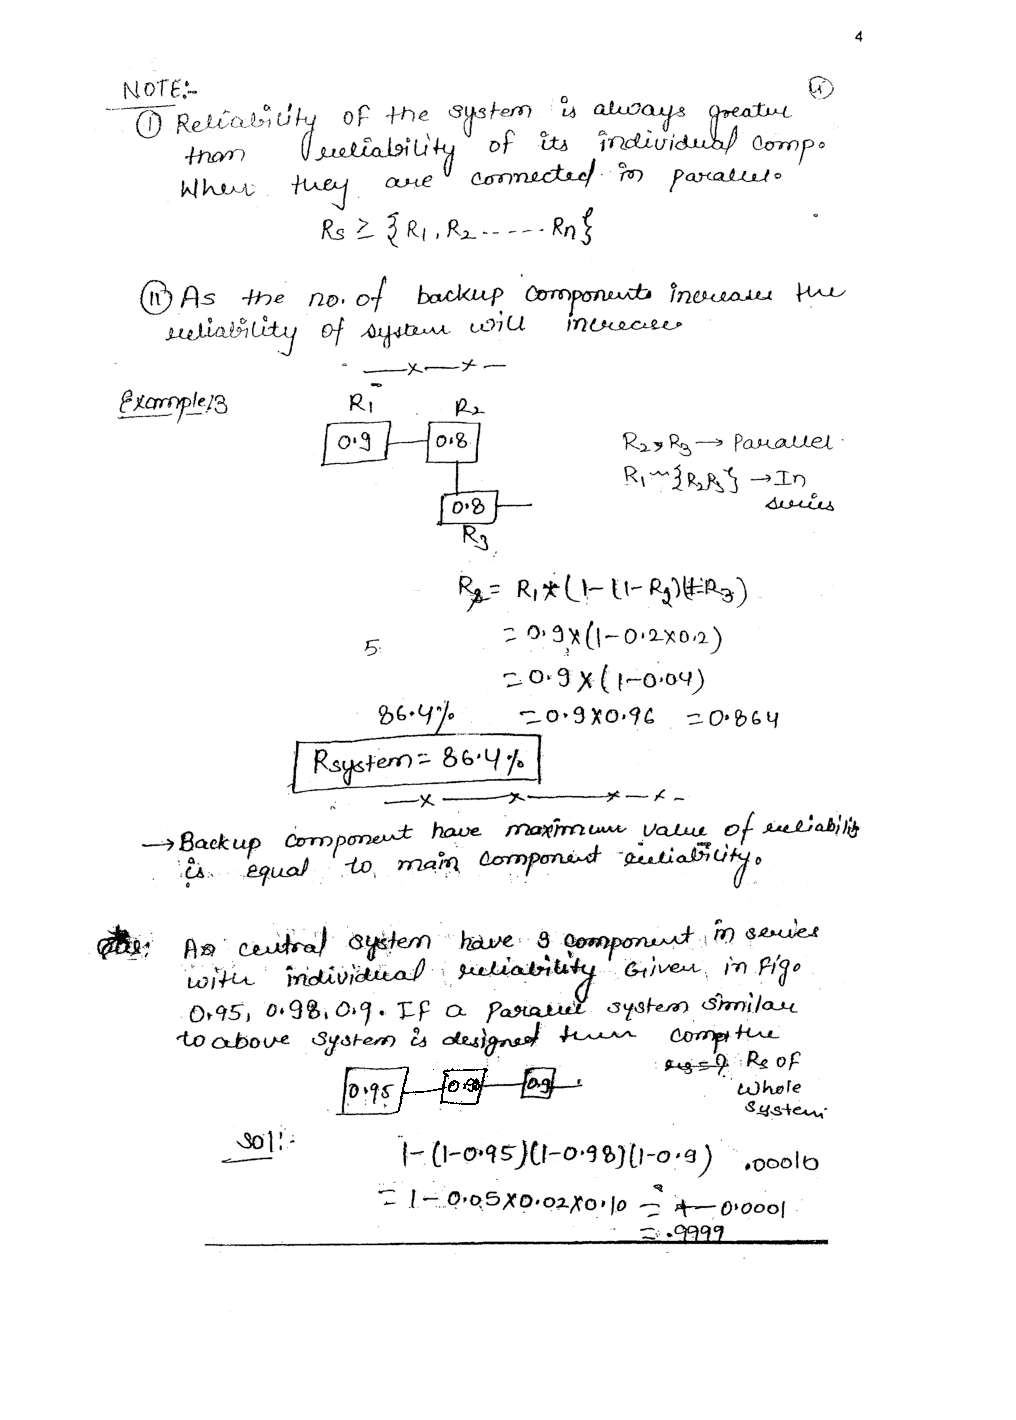 4
NOTE:-
① Reliability of the system is always greater
than reliability of its individual comp.
When they are connected in parallel.
Rs ≥ {R1, R2 ------ Rn}
⑪ As the no. of backup components increases the
reliability of system will increase
Example/3
R1
R2
0.9
0.8
R2, R3 → Parallel
R1 ~ {R2R3} → In
series
0.8
R3
= R1 * (1-(1-R2)(1-R3)
= 0.9 x (1-0.2x0.2)
5.
= 0.9 x (1-0.04)
86.4%
= 0.9x0.96 = 0.864
Rsystem = 86.4%
→ Backup component have maximum value of reliability
is equal to main component reliability.
central system have 3 component in series
with individual reliability Given in fig.
0.95, 0.98, 0.9. If a Parallel system similar
to above system is designed then the
Rs of
0.95
0.98
0.9
whole
system
Sol:-
1-(1-0.95)(1-0.98)(1-0.9)
.00010
= 1-0.05x0.02x0.10 = 1-0.0001
= .9999